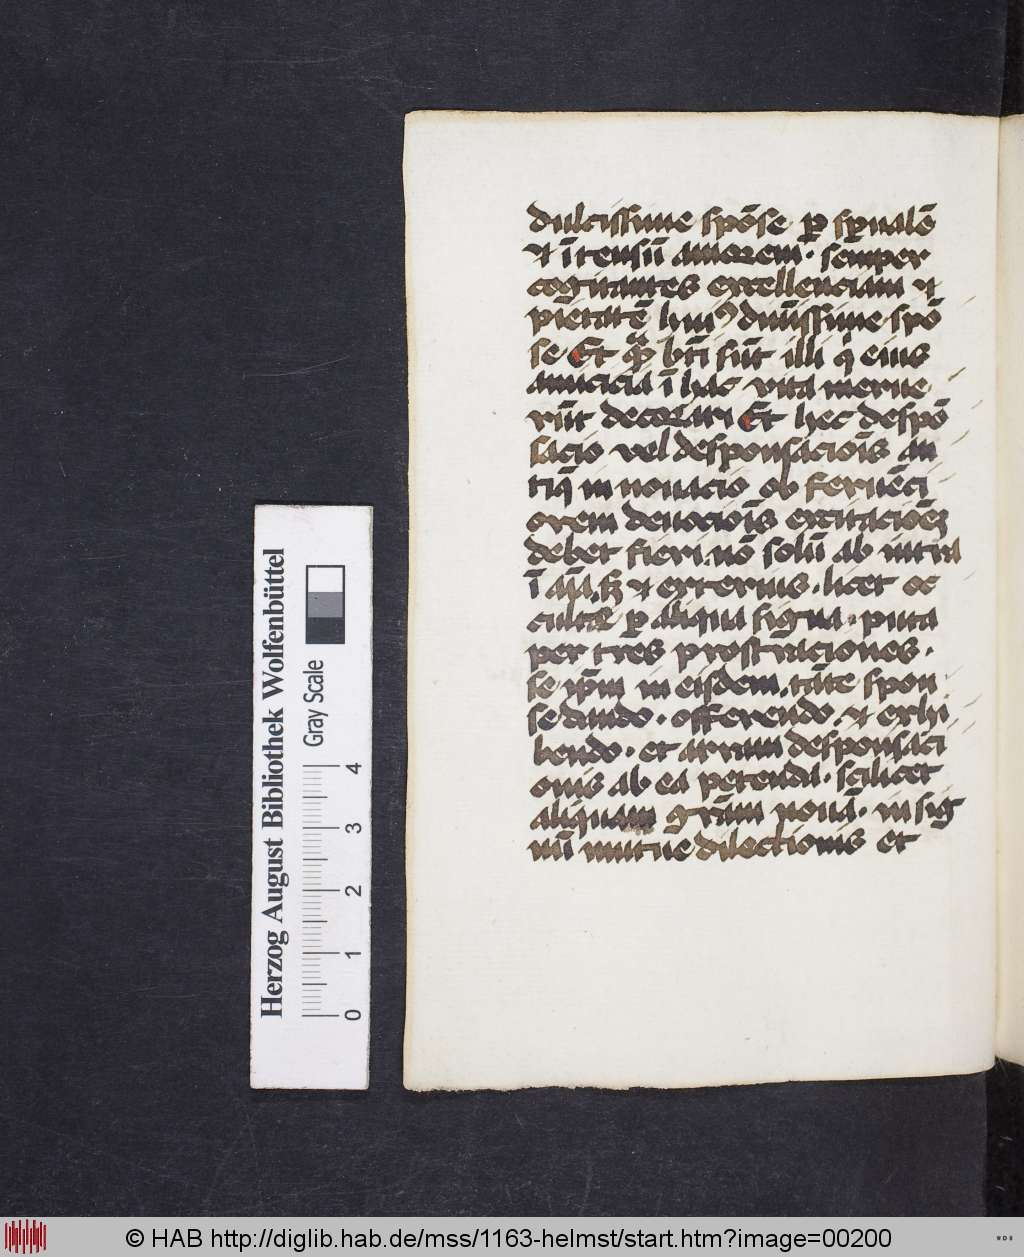 dulcissime spōse ꝑ spũalē
et ītensū amorem · semper
cogitantes excellenciam et
pietatē huiꝰ diuīssime spō
se Et qm̄ bt̄i sūt illi q eius
amicicia ī hac vita merue
rūt decorari Et hec despō
sacio vel desponsaciōis an
tiq̄ innouacio ob feruēci
orem deuociōis excitacōeꝫ
debet fieri nō solū ab intra
ī aīa sꝫ et exterius · licet oc
culte ꝑ aliqua signa · puta
per tres prostraciones ·
se ip̄m in eisdem tāte spon
se dando · offerendo et exhi
bendo · et arram desponsaci
onis ab ea petendā · scilicet
aliquam grām nouā · in sig
nū mutue dilectionis et
Herzog August Bibliothek Wolfenbüttel
Gray Scale
0 1 2 3 4
© HAB http://diglib.hab.de/mss/1163-helmst/start.htm?image=00200